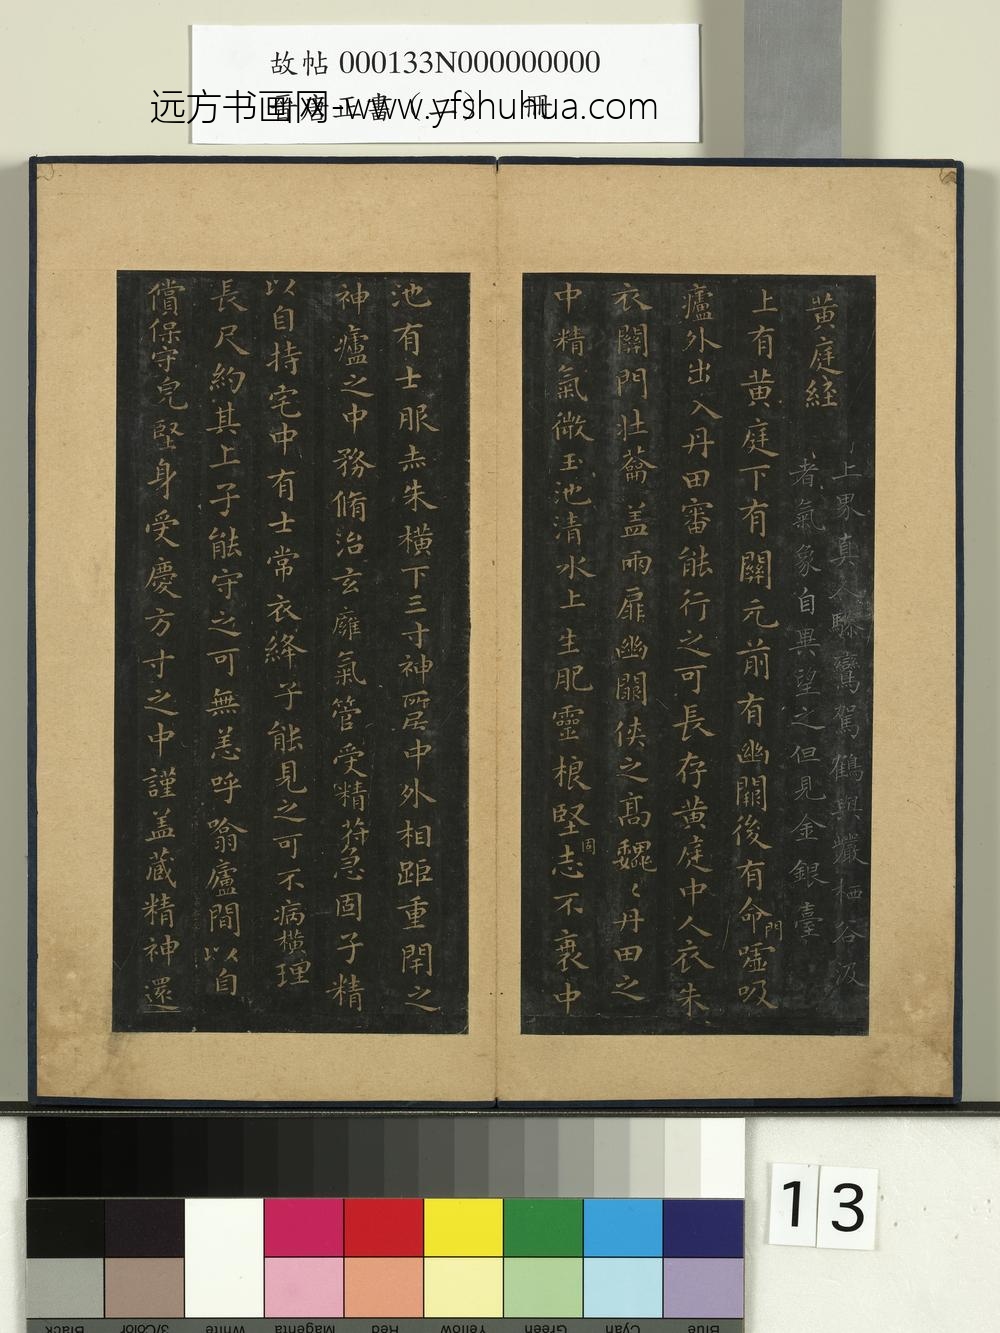 故帖 000133N000000000
远方书画网-www.yfshuhua.com
黄庭経
上界真人驂鸞駕鶴與巖栖谷汲
者氣象自異望之但見金銀臺
上有黄庭下有關元前有幽闕後有命門嘘吸
廬外出入丹田審能行之可長存黄庭中人衣朱
衣關門壮蘥盖兩扉幽闕俠之髙魏〻丹田之
中精氣微玉池清水上生肥靈根堅固志不衰中
池有士服赤朱横下三寸神所居中外相距重閇之
神廬之中務脩治玄廱氣管受精符急固子精
以自持宅中有士常衣絳子能見之可不病横理
長尺約其上子能守之可無恙呼噏廬間以自
償保守皃堅身受慶方寸之中謹盖藏精神還
13
Black
3/Color
White
Magenta
Red
Yellow
Green
Cyan
Blue